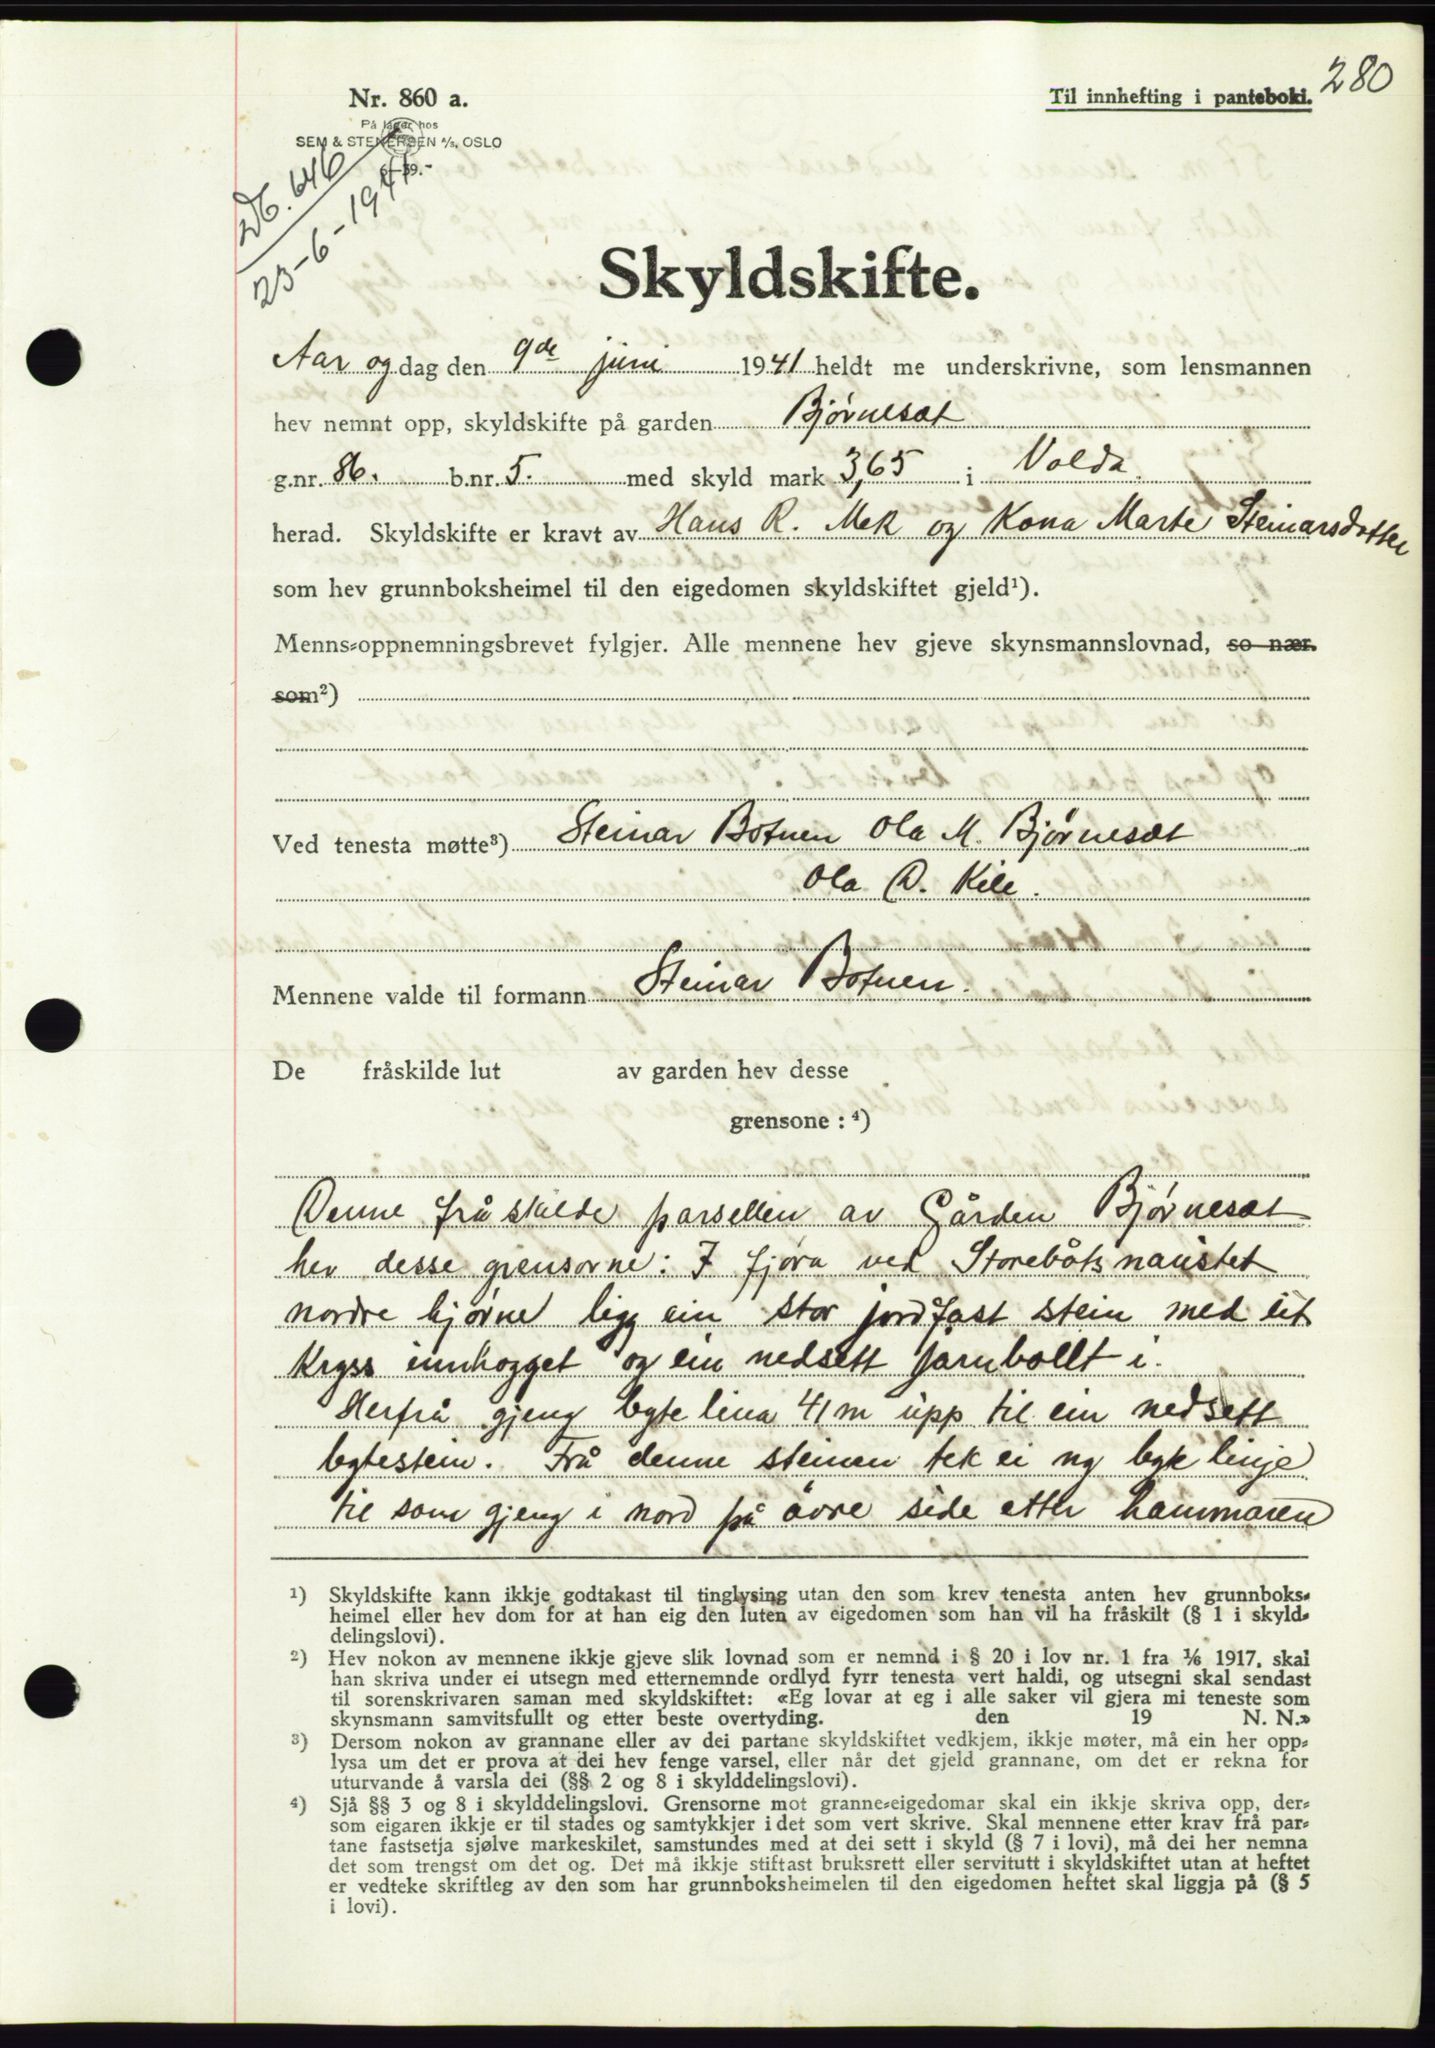 280
Nr. 860 a.
Til innhefting i panteboki.
På lager hos
SEM & STENERSEN A/S, OSLO
6–39.-
Db. 646
23-6-1941
Skyldskifte.
Aar og dag den 9de juni 1941 heldt me underskrivne, som lensmannen
hev nemnt opp, skyldskifte på garden Bjørnesæt
g.nr. 86. b.nr. 5. med skyld mark 3,65 i Volda.
herad. Skyldskifte er kravt av Hans R. Mek og Kona Marte Steinarsdotter
som hev grunnboksheimel til den eigedomen skyldskiftet gjeld¹).
Menns-oppnemningsbrevet fylgjer. Alle mennene hev gjeve skynsmannslovnad, so nær
som²)
Ved tenesta møtte³) Steinar Botnen Ola M. Bjørnesæt
Ola D. Kile.
Mennene valde til formann Steinar Botnen.
De fråskilde lut av garden hev desse
grensone : ⁴)
Denne fråskilde parsellen av Gården Bjørnesæt
hev desse grensorne: I fjøra ved Storebåtsnaustet
nordre hjørne ligg ein stor jordfast stein med eit
Kryss innhogget og ein nedsett jarnbollt i.
Herfrå gjeng byte lina 41 m upp til ein nedsett
bytestein. Frå denne steinen tek ei ny byte linje
til som gjeng i nord på övre side etter hammaren
¹) Skyldskifte kann ikkje godtakast til tinglysing utan den som krev tenesta anten hev grunnboks-
heimel eller hev dom for at han eig den luten av eigedomen som han vil ha fråskilt (§ 1 i skyld-
delingslovi).
²) Hev nokon av mennene ikkje gjeve slik lovnad som er nemnd i § 20 i lov nr. 1 fra ⅙ 1917, skal
han skriva under ei utsegn med etternemnde ordlyd fyrr tenesta vert haldi, og utsegni skal sendast
til sorenskrivaren saman med skyldskiftet: «Eg lovar at eg i alle saker vil gjera mi teneste som
skynsmann samvitsfullt og etter beste overtyding. den 19 N. N.»
³) Dersom nokon av grannane eller av dei partane skyldskiftet vedkjem, ikkje møter, må ein her opp-
lysa um det er prova at dei hev fenge varsel, eller når det gjeld grannane, om det er rekna for
uturvande å varsla dei (§§ 2 og 8 i skylddelingslovi).
⁴) Sjå §§ 3 og 8 i skylddelingslovi. Grensorne mot granne-eigedomar skal ein ikkje skriva opp, der-
som eigaren ikkje er til stades og samtykkjer i det som vert skrive. Skal mennene etter krav frå par-
tane fastsetja sjølve markeskilet, samstundes med at dei sett i skyld (§ 7 i lovi), må dei her nemna
det som trengst om det og. Det må ikkje stiftast bruksrett eller servitutt i skyldskiftet utan at heftet
er vedteke skriftleg av den som har grunnboksheimelen til den eigedomen heftet skal liggja på (§ 5
i lovi).